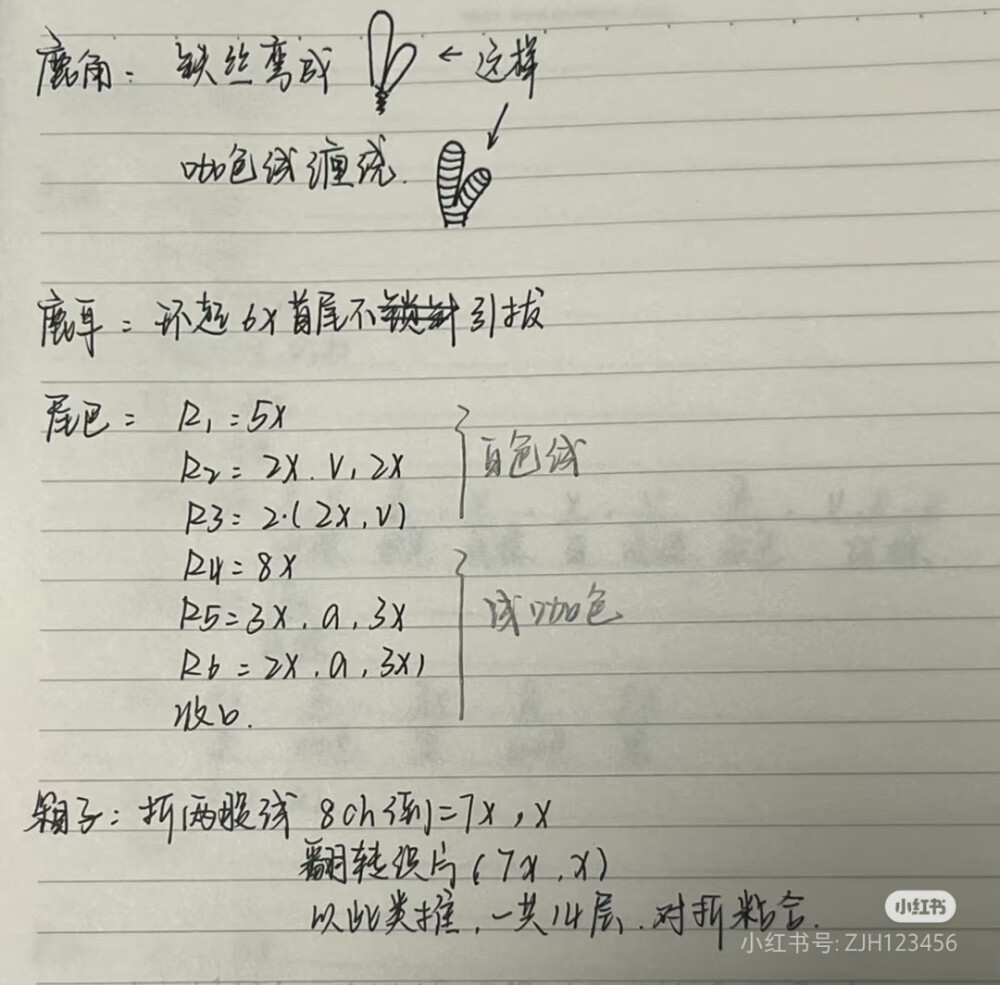 鹿角: 铁丝弯成 ← 这样
咖色线缠绕.
鹿耳: 环起6X首尾不锁针引拔
尾巴: R1=5X
R2=2X.V,2X
白色线
R3=2.(2X,V)
R4=8X
R5=3X.A,3X
咖色
R6=2X.A,3X)
收口.
折两股线 8ch 倒=7X,X
翻转织片(7X,X)
以此类推,一共14层.对折粘合.
小红书
小红书号: ZJH123456